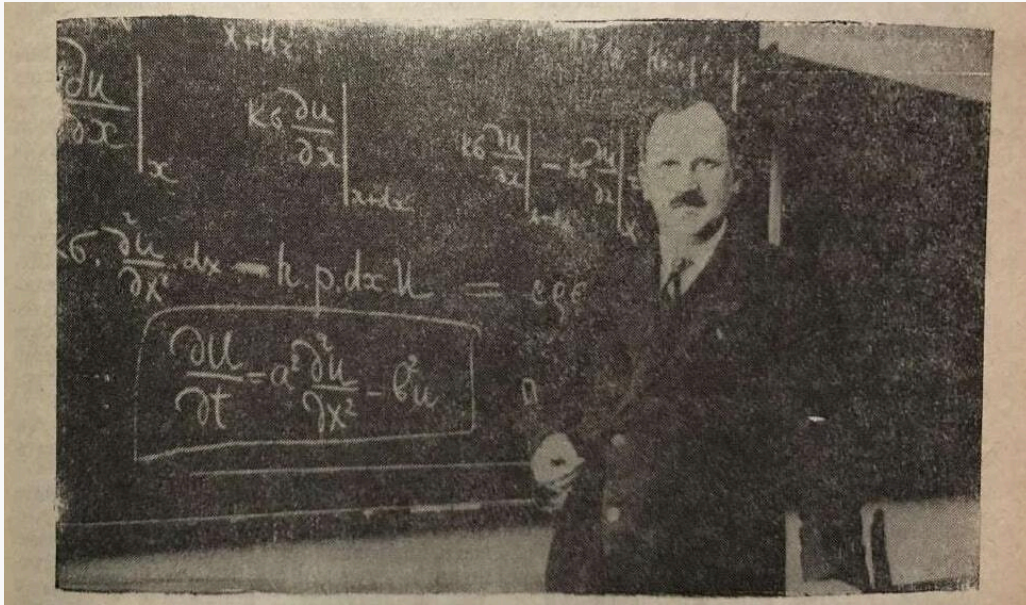 x+dx
∂u/∂x|ₓ   кσ ∂u/∂x|ₓ₊dx   кσ ∂u/∂x|ₓ₊dx − кσ ∂u/∂x|ₓ
кσ. ∂²u/∂x² dx − h.p.dx u = cρσ
∂u/∂t = a² ∂²u/∂x² − b²u